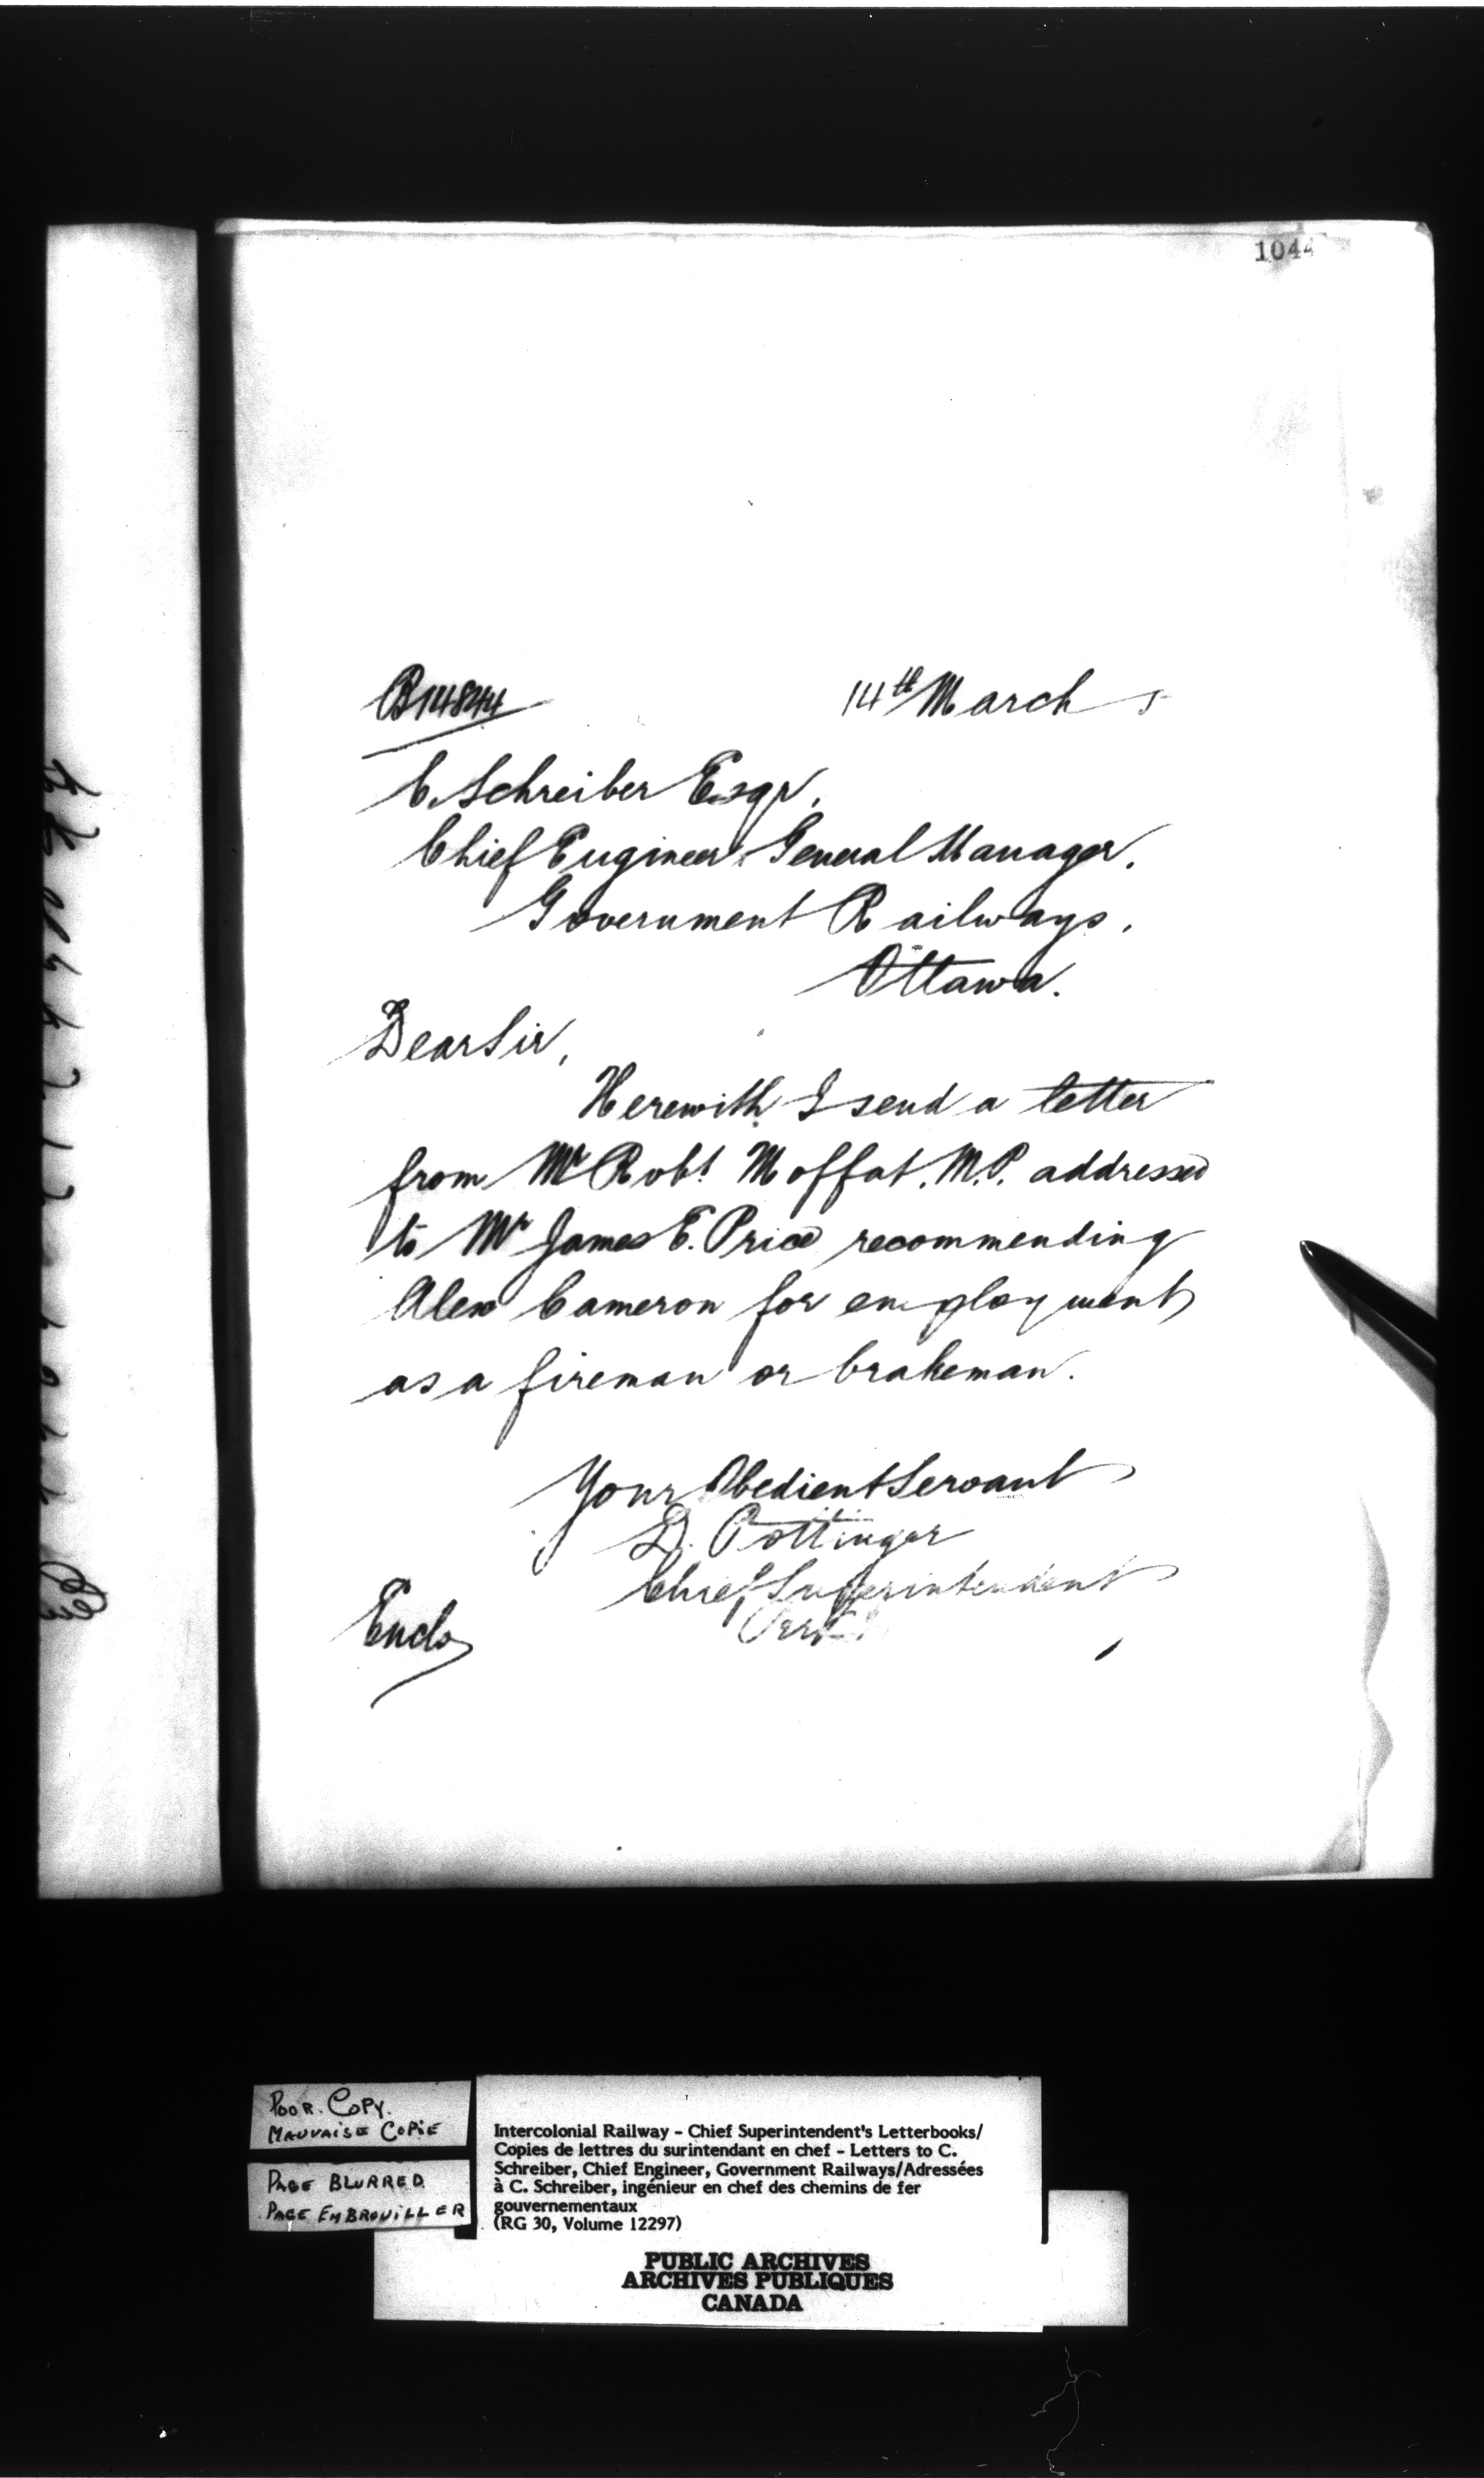 1044
B14844
14th March 5
C. Schreiber Esqr,
Chief Engineer & General Manager.
Government Railways,
Ottawa.
Dear Sir,
Herewith I send a letter
from Mr Robt Moffat, M.P. addressed
to Mr James E. Price recommending
Alex Cameron for employment
as a fireman or brakeman.
Your Obedient Servant
D. Pottinger
Chief Superintendent
Enclo
POOR COPY.
MAUVAISE COPIE
PAGE BLURRED
PAGE EMBROUILLER
Intercolonial Railway - Chief Superintendent's Letterbooks/
Copies de lettres du surintendant en chef - Letters to C.
Schreiber, Chief Engineer, Government Railways/Adressées
à C. Schreiber, ingénieur en chef des chemins de fer
gouvernementaux
(RG 30, Volume 12297)
PUBLIC ARCHIVES
ARCHIVES PUBLIQUES
CANADA